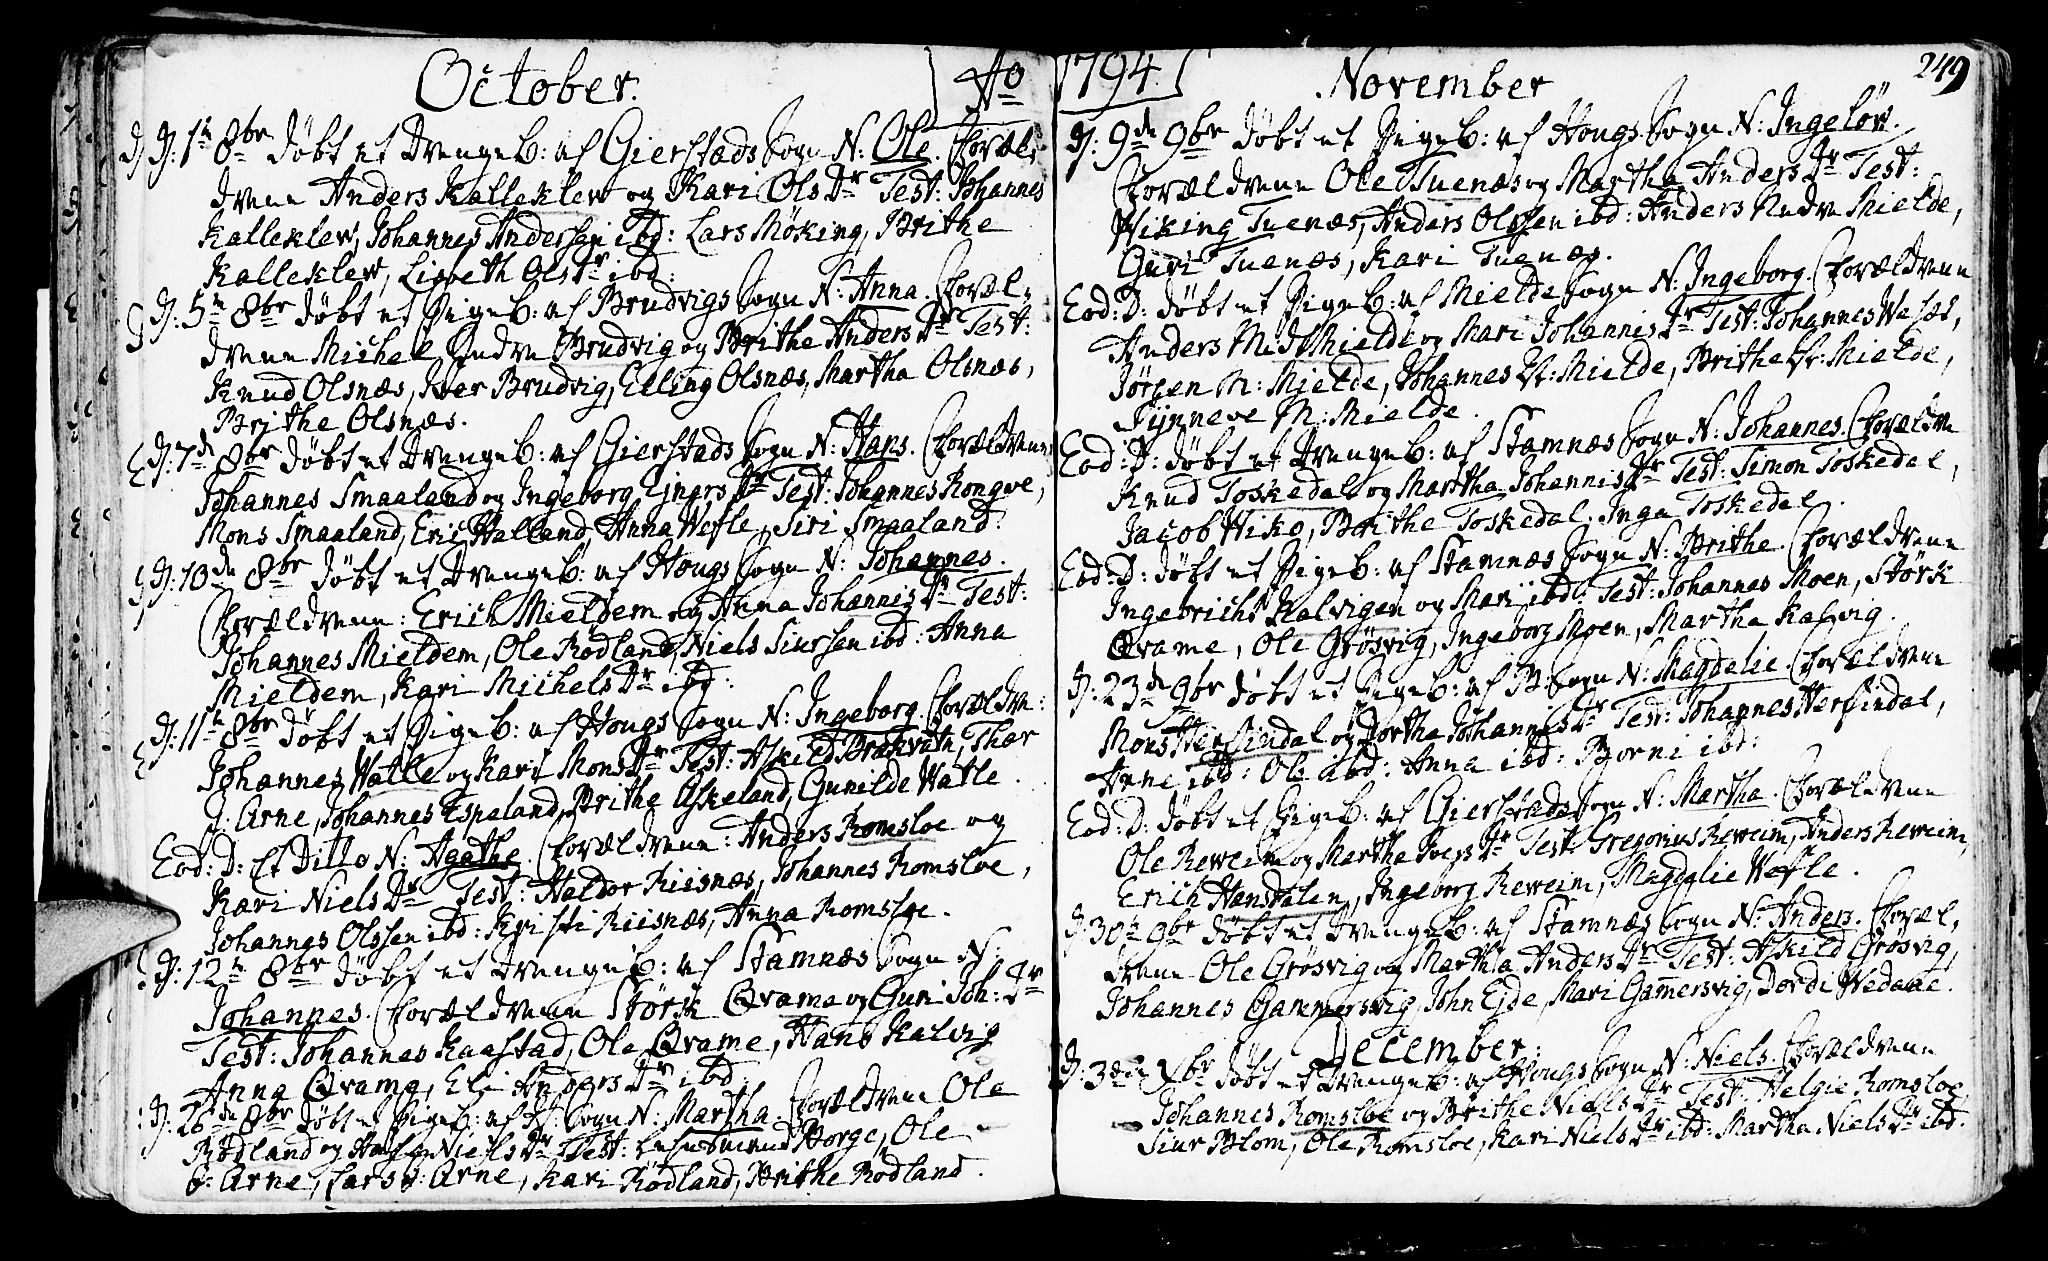 October. Ao
D: 1te 8br døbt et Drengeb: af Gierstads Sogn N: Ole. Foræl-
drene Anders Kalleklew og Kari Ols Dr Test: Johannes
Kalleklew, Johannes Andersen ibd: Lars Møking, Brithe
Kalleklew, Lisbeth Ols Dr ibd:
D: 5te 8br døbt et Pigeb: af Brudvigs Sogn N: Anna. Foræl-
drene Michel Indre Brudvig og Brithe Anders Dr Test:
Knud Olsnæs, Iver Brudvig, Elling Olsnæs, Martha Olsnæs,
Brithe Olsnæs.
D: 7de 8br døbt et Drengeb: af Gierstads Sogn N: Hans. Forældrene
Johannes Smaaland og Ingeborg Ejners Dr Test: Johannes Kongve,
Mons Smaaland, Eric Halland, Anna Wefle, Siri Smaaland.
D: 10de 8br døbt et Drengeb: af Hougs Sogn N: Johannes.
Forældrene: Erich Mieldem og Anna Johannis Dr Test:
Johannes Mieldem, Ole Rødland, Niels Siursen ibd: Anna
Mieldem, Kari Michels Dr ibd:
D: 11te 8br døbt et Pigeb: af Hougs Sogn N: Ingeborg. Forældre:
Johannes Watle og Kari Mons Dr Test: Askild Brakvith, Thar
Y: Arne, Johannes Espeland, Brithe Askeland, Gunilde Watle.
Eod: D: Et Ditto N: Agathe. Forældrene: Anders Romsloe og
Kari Niels Dr Test: Haldor Riisnæs, Johannes Romsloe,
Johannes Olssen ibd: Kristi Riisnæs, Anna Romsloe.
D: 12te 8br døbt et Drengeb: af Stamnæs Sogn N:
Johannes. Forældrene Størk Qvame og Guri Joh: Dr
Test: Johannes Kaastad, Ole Qvame, Hans Kalvig
Anna Qvame, Eli Anders Dr ibd
D: 26de 8br døbt et Pigeb: af H: Sogn N: Martha. Forældrene Ole
Rødland og Niels Dr Test: Borge, Ole
Y: Arne, Lars Y: Arne, Kari Rødland, Brithe Rødland.
1794. November 249
D: 9de 9br døbt et Pigeb: af Hougs Sogn N: Ingeløv.
Forældrene Ole Tuenæs og Martha Anders Dr Test:
Wiking Tuenæs, Anders Olssen ibd: Anders Nedre Mielde,
Guri Tuenæs, Kari Tuenæs.
Eod: D: døbt et Pigeb: af Mielde Sogn N: Ingeborg. Forældrene
Anders Midt Mielde og Mari Johannis Dr Test: Johannes Wasæt,
Jørgen M: Mielde, Johannes Yt: Mielde, Brithe Yt: Mielde,
Synneve M: Mielde.
Eod: D: døbt et Drengeb: af Stamnæs Sogn N: Johannes. Forældrene
Knud Toskedal og Martha Johannis Dr Test: Simon Toskedal,
Jacob Hiko, Brithe Toskedal, Inga Toskedal.
Eod: D: døbt et Pigeb: af Stamnæs Sogn N: Brithe. Forældrene
Ingebricht Kalvigen og Mari ibd: Test: Johannes Moen, Størk
Qvame, Ole Grøsvig, Ingeborg Moen, Martha Kalvig.
D: 23de 9br døbt et Pigeb: af B: Sogn N: Magdelie. Forældrene
Mons Hersindal og Dortha Johannis Dr Test: Johannes Hersindal,
Arne ibd: Ole ibd: Anna ibd: Borni ibd:
Eod: D: døbt et Pigeb: af Gierstads Sogn N: Martha. Forældrene
Ole Reweim og Martha Joens Dr Test: Gregorius Reweim, Anders Reweim,
Erich Hansdalen, Ingeborg Reweim, Magdelie Wefle.
D: 30te 9br døbt et Drengeb: af Stamnæs Sogn N: Anders. Foræl-
drene Ole Grøsvig og Martha Anders Dr Test: Askild Grøsvig,
Johannes Gammersvig, John Eide, Mari Gamersvig, Dordi Wedaae.
December.
D: 3die Xbr døbt et Drengeb: af Hougs Sogn N: Niels. Forældrene
Johannes Romsloe og Brithe Niels Dr Test: Helgie Romsloe,
Siur Blom, Ole Romsloe, Kari Niels Dr ibd: Martha Niels Dr ibd.